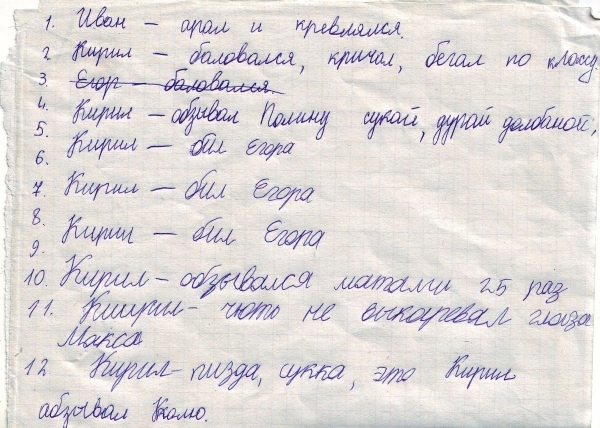 1. Иван – арал и кревлялся.
2 Кирил – баловался, кричал, бегал по классу
3. Егор – баловался.
4. Кирил – обзывал Полину сукай, дурай долбаной,
5.
6. Кирил – бил Егора
7. Кирил – бил Егора
8.
9. Кирил – бил Егора
10. Кирил – обзывался матами 25 раз
11. Киирил – чють не выкаревал глаза
Макса
12 Кирил – пизда, сукка, это Кирил
абзывал Колю.